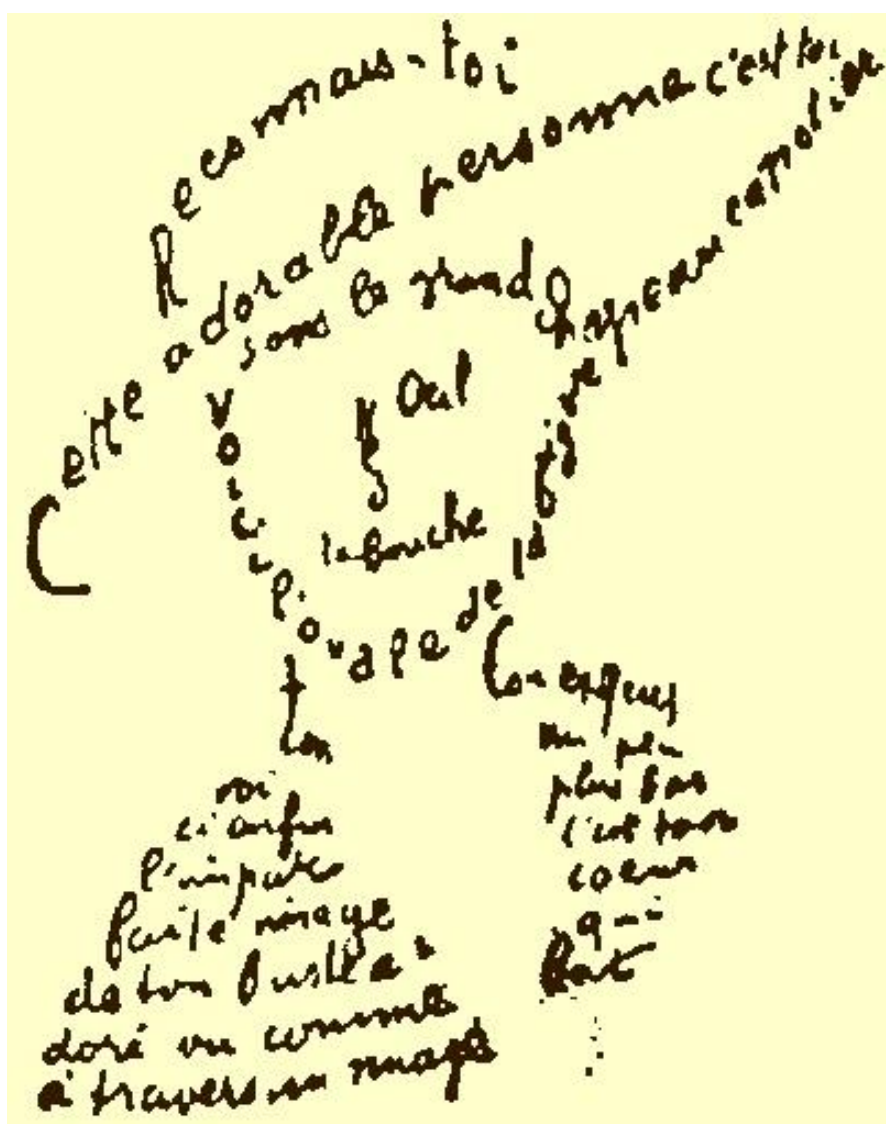 Reconnais-toi
Cette adorable personne c'est toi
sous le grand chapeau canotier
Oeil
Nez
la bouche
Voici l'ovale de ta figure
Ton
cou exquis
voi
ci enfin
l'impar
faite image
de ton buste a
doré vu comme
à travers un nuage
un peu
plus bas
c'est ton
coeur
qui
bat